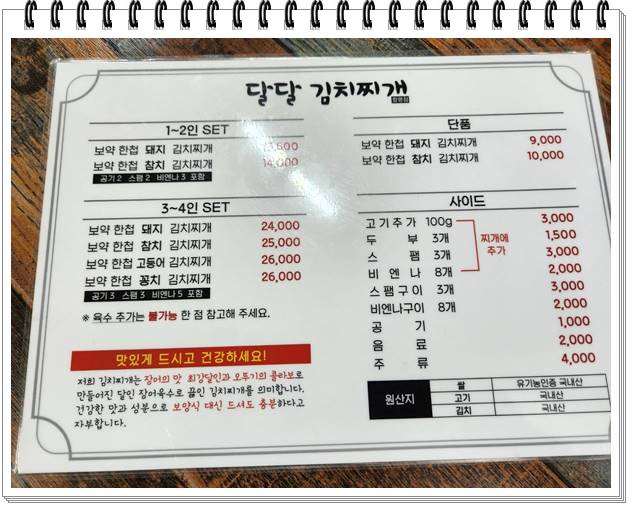 달달 김치찌개
1~2인 SET
보약 한첩 돼지 김치찌개
보약 한첩 참치 김치찌개 14,000
공기 2 스팸 2 비엔나 3 포함
3~4인 SET
보약 한첩 돼지 김치찌개 24,000
보약 한첩 참치 김치찌개 25,000
보약 한첩 고등어 김치찌개 26,000
보약 한첩 꽁치 김치찌개 26,000
공기 3 스팸 3 비엔나 5 포함
※ 육수 추가는 불가능 한 점 참고해 주세요.
맛있게 드시고 건강하세요!
저희 김치찌개는 장어의 맛 최강달인과 오뚜기의 콜라보로
만들어진 달인 장어육수로 끓인 김치찌개를 의미합니다.
건강한 맛과 성분으로 보양식 대신 드셔도 충분하다고
자부합니다.
단품
보약 한첩 돼지 김치찌개 9,000
보약 한첩 참치 김치찌개 10,000
사이드
고기추가 100g 3,000
두부 3개 1,500
스팸 3개 3,000
비엔나 8개 2,000
찌개에
추가
스팸구이 3개 3,000
비엔나구이 8개 2,000
공기 1,000
음료 2,000
주류 4,000
원산지
쌀 유기농인증 국내산
고기 국내산
김치 국내산